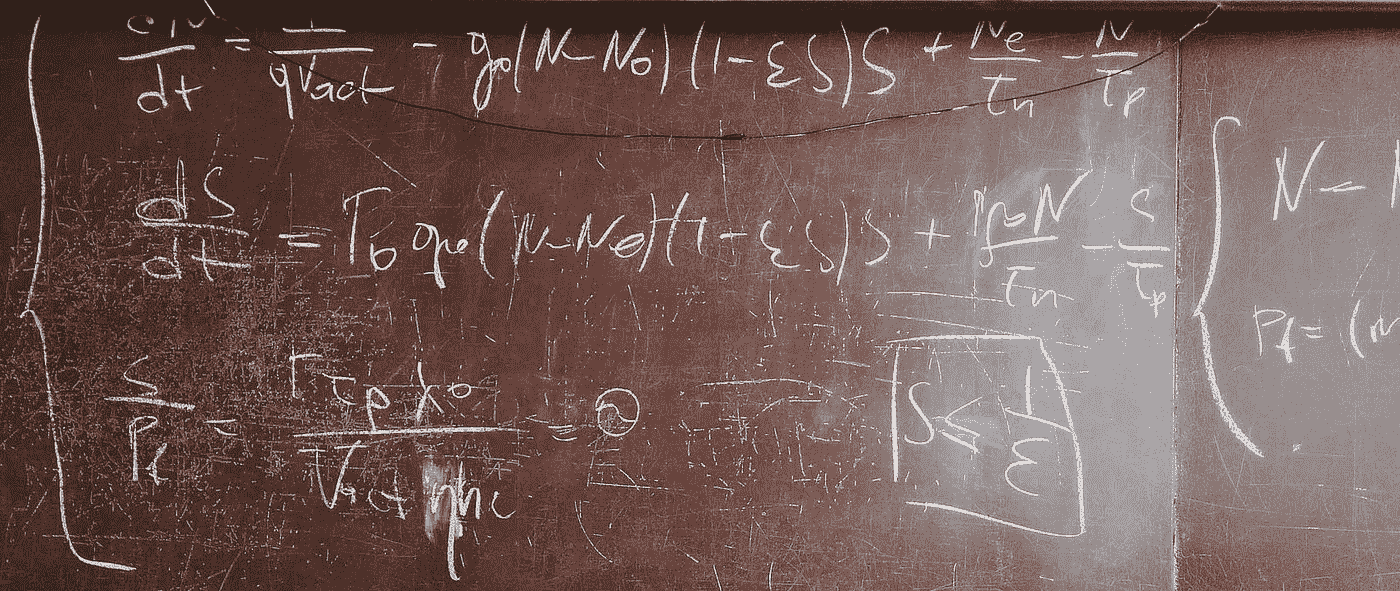 dN/dt = I/qVact - g₀(N-N₀)(1-εS)S + Ne/τn - N/τp
dS/dt = Γ₀ g₀(N-N₀)(1-εS)S + βN/τn - S/τp
S/Pf = Γτpλ₀/Vact ηhc = ϑ
S ≤ 1/ε
N -
Pf = (